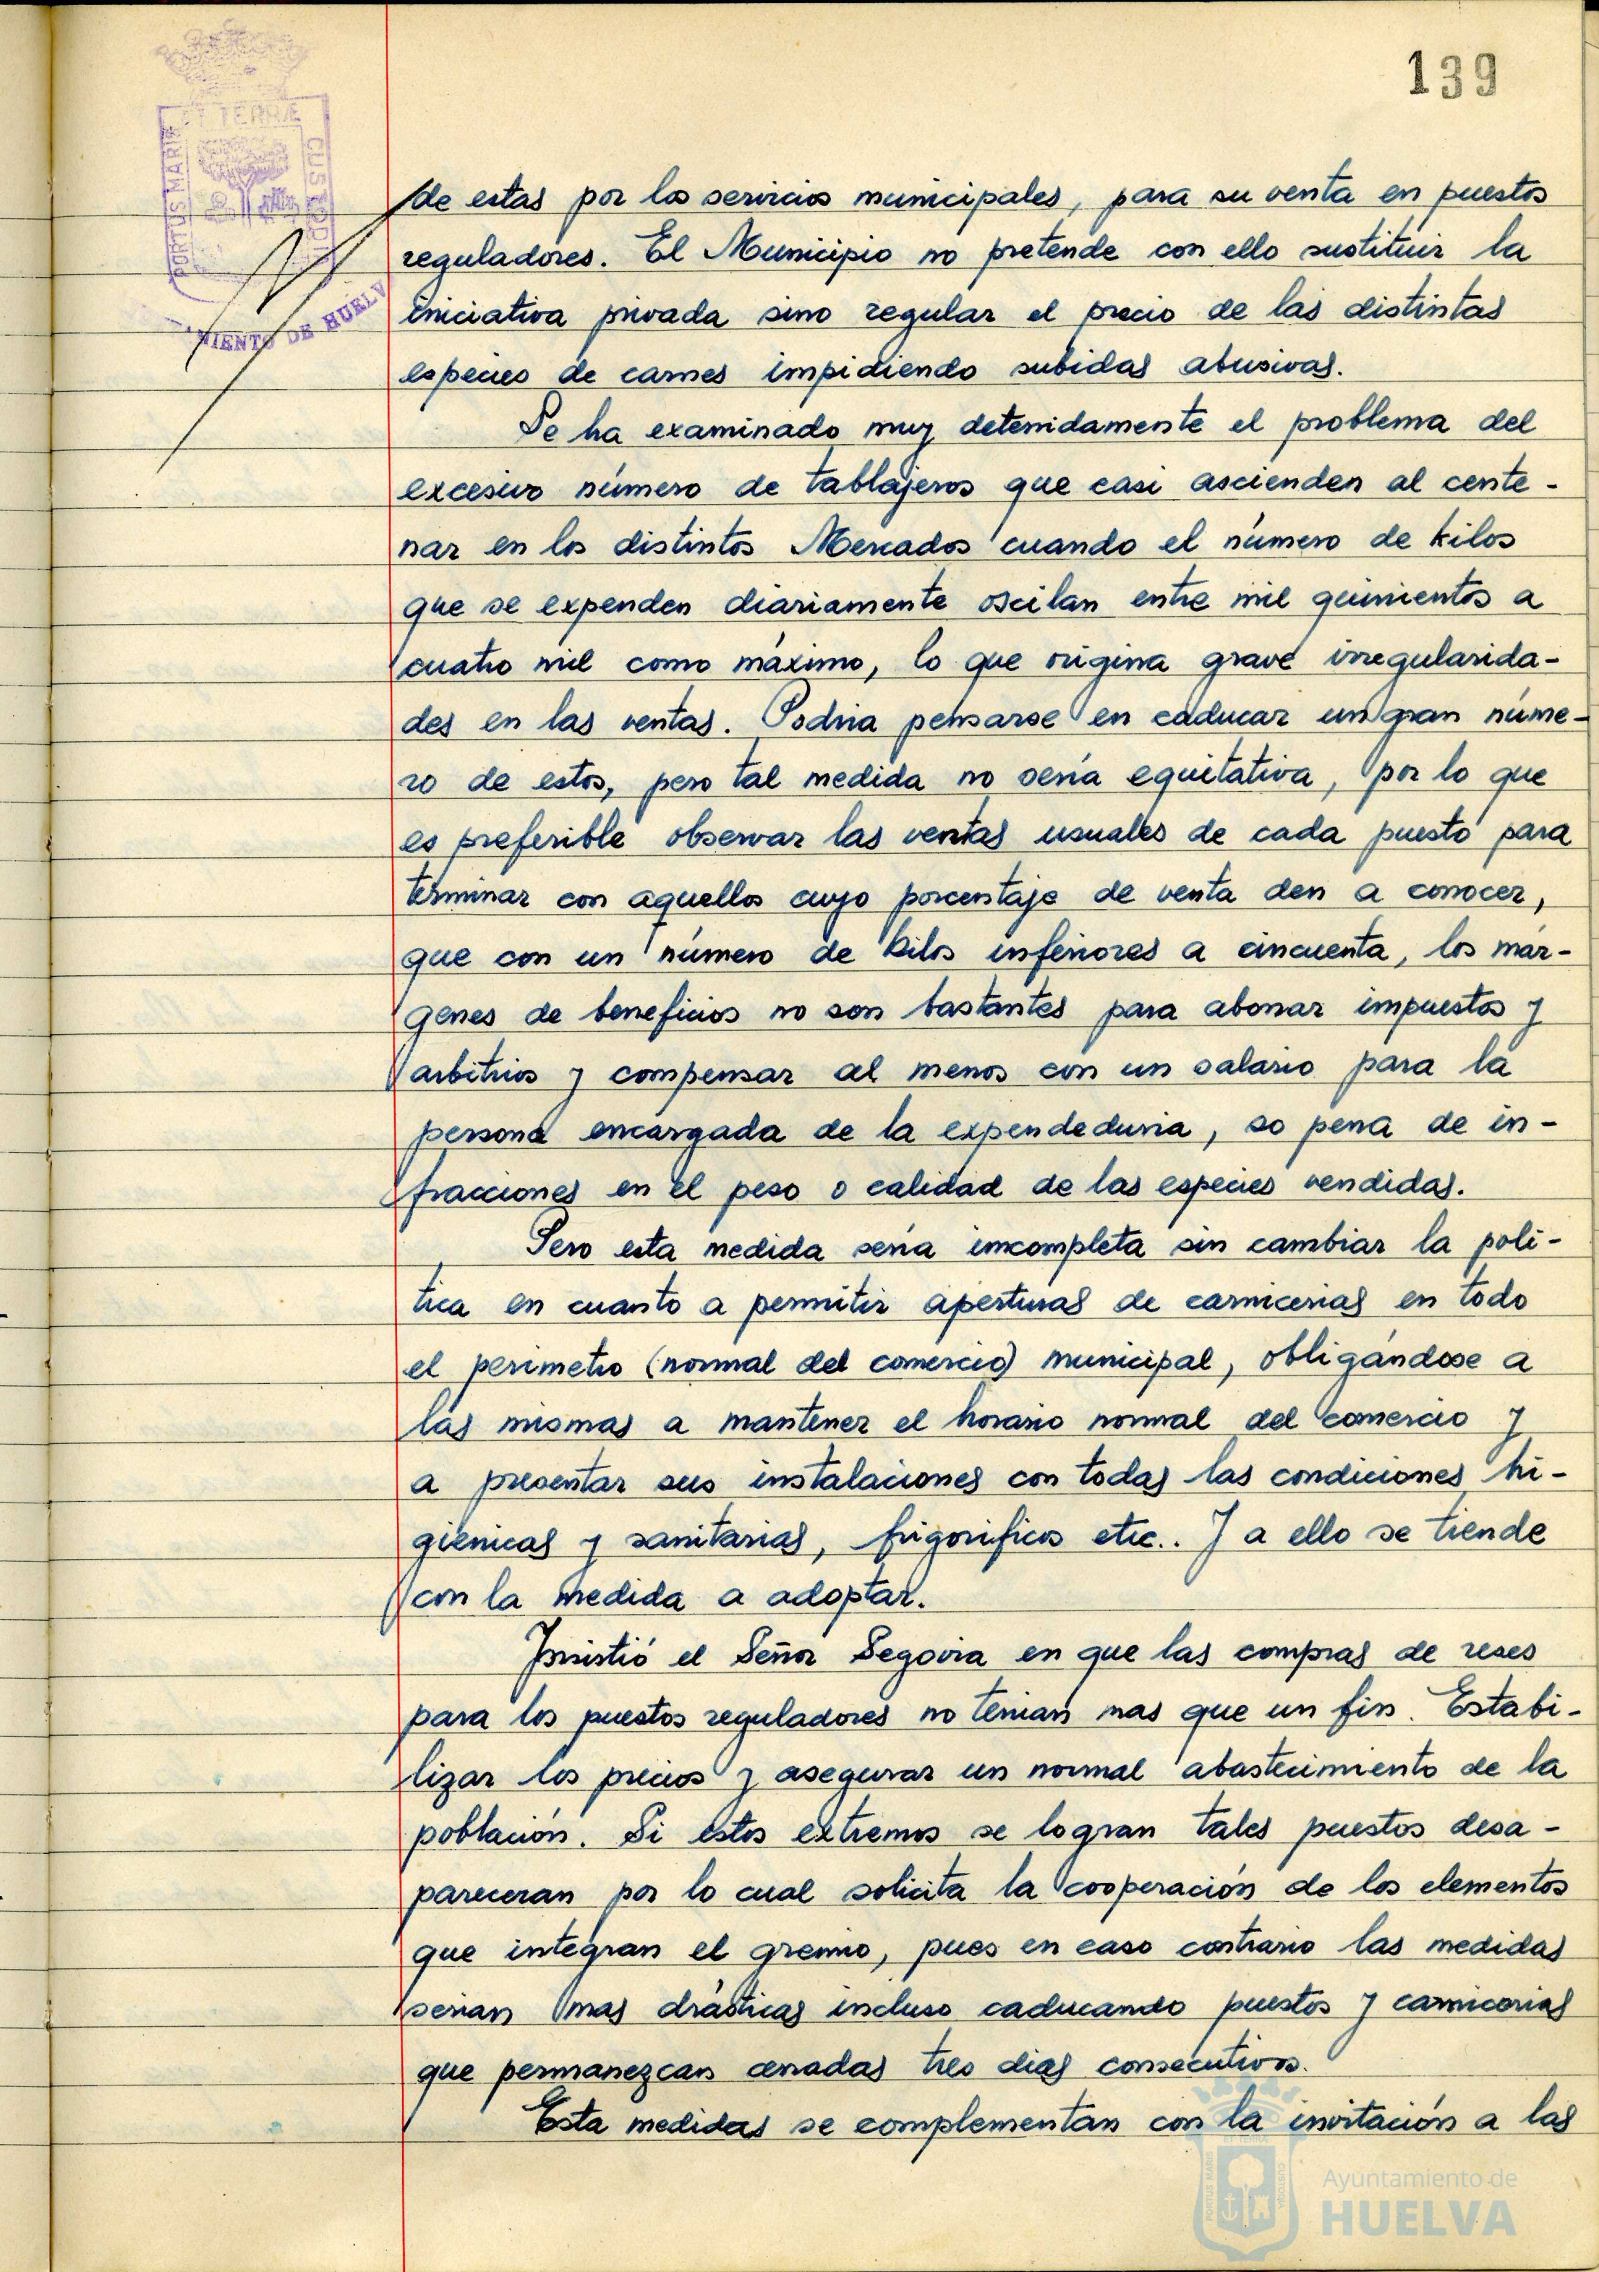 139
ET TERRÆ
PORTUS MARIS
CUSTODIA
AMIENTO DE HUELV
de estas por los servicios municipales, para su venta en puestos
reguladores. El Municipio no pretende con ello sustituir la
iniciativa privada sino regular el precio de las distintas
especies de carnes impidiendo subidas abusivas.
Se ha examinado muy detenidamente el problema del
excesivo número de tablajeros que casi ascienden al cente-
nar en los distintos Mercados cuando el número de kilos
que se expenden diariamente oscilan entre mil quinientos a
cuatro mil como máximo, lo que origina grave irregularida-
des en las ventas. Podria pensarse en caducar un gran núme-
ro de estos, pero tal medida no sería equitativa, por lo que
es preferible observar las ventas usuales de cada puesto para
terminar con aquellos cuyo porcentaje de venta den a conocer,
que con un número de kilos inferiores a cincuenta, los már-
genes de beneficios no son bastantes para abonar impuestos y
arbitrios y compensar al menos con un salario para la
persona encargada de la expendeduria, so pena de in-
fracciones en el peso o calidad de las especies vendidas.
Pero esta medida sería imcompleta sin cambiar la poli-
tica en cuanto a permitir aperturas de carnicerias en todo
el perimetro (normal del comercio) municipal, obligándose a
las mismas a mantener el horario normal del comercio y
a presentar sus instalaciones con todas las condiciones hi-
gienicas y sanitarias, frigorificos etc.. Y a ello se tiende
con la medida a adoptar.
Insistió el Señor Segovia en que las compras de reses
para los puestos reguladores no tenian mas que un fin. Estabi-
lizar los precios y asegurar un normal abastecimiento de la
población. Si estos extremos se logran tales puestos desa-
pareceran por lo cual solicita la cooperación de los elementos
que integran el gremio, pues en caso contrario las medidas
serian mas drásticas incluso caducando puestos y carnicerias
que permanezcan cerradas tres dias consecutivos.
Esta medidas se complementan con la invitación a las
Ayuntamiento de
HUELVA